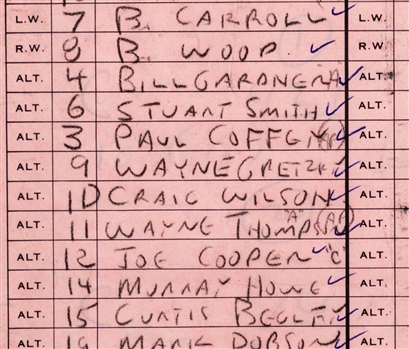 L.W. 7 B. CARROLL ✓ L.W.
R.W. 8 B. WOOD ✓ R.W.
ALT. 4 BILL GARDNER ✓ ALT.
ALT. 6 STUART SMITH ✓ ALT.
ALT. 3 PAUL COFFEY ✓ ALT.
ALT. 9 WAYNE GRETZKY ✓ ALT.
ALT. 10 CRAIG WILSON ✓ ALT.
ALT. 11 WAYNE "A" ALT.
ALT. 12 JOE COOPER ✓ "C" ALT.
ALT. 14 MURRAY HOWE ✓ ALT.
ALT. 15 CURTIS ✓ ALT.
ALT. MARK DOBSON ALT.